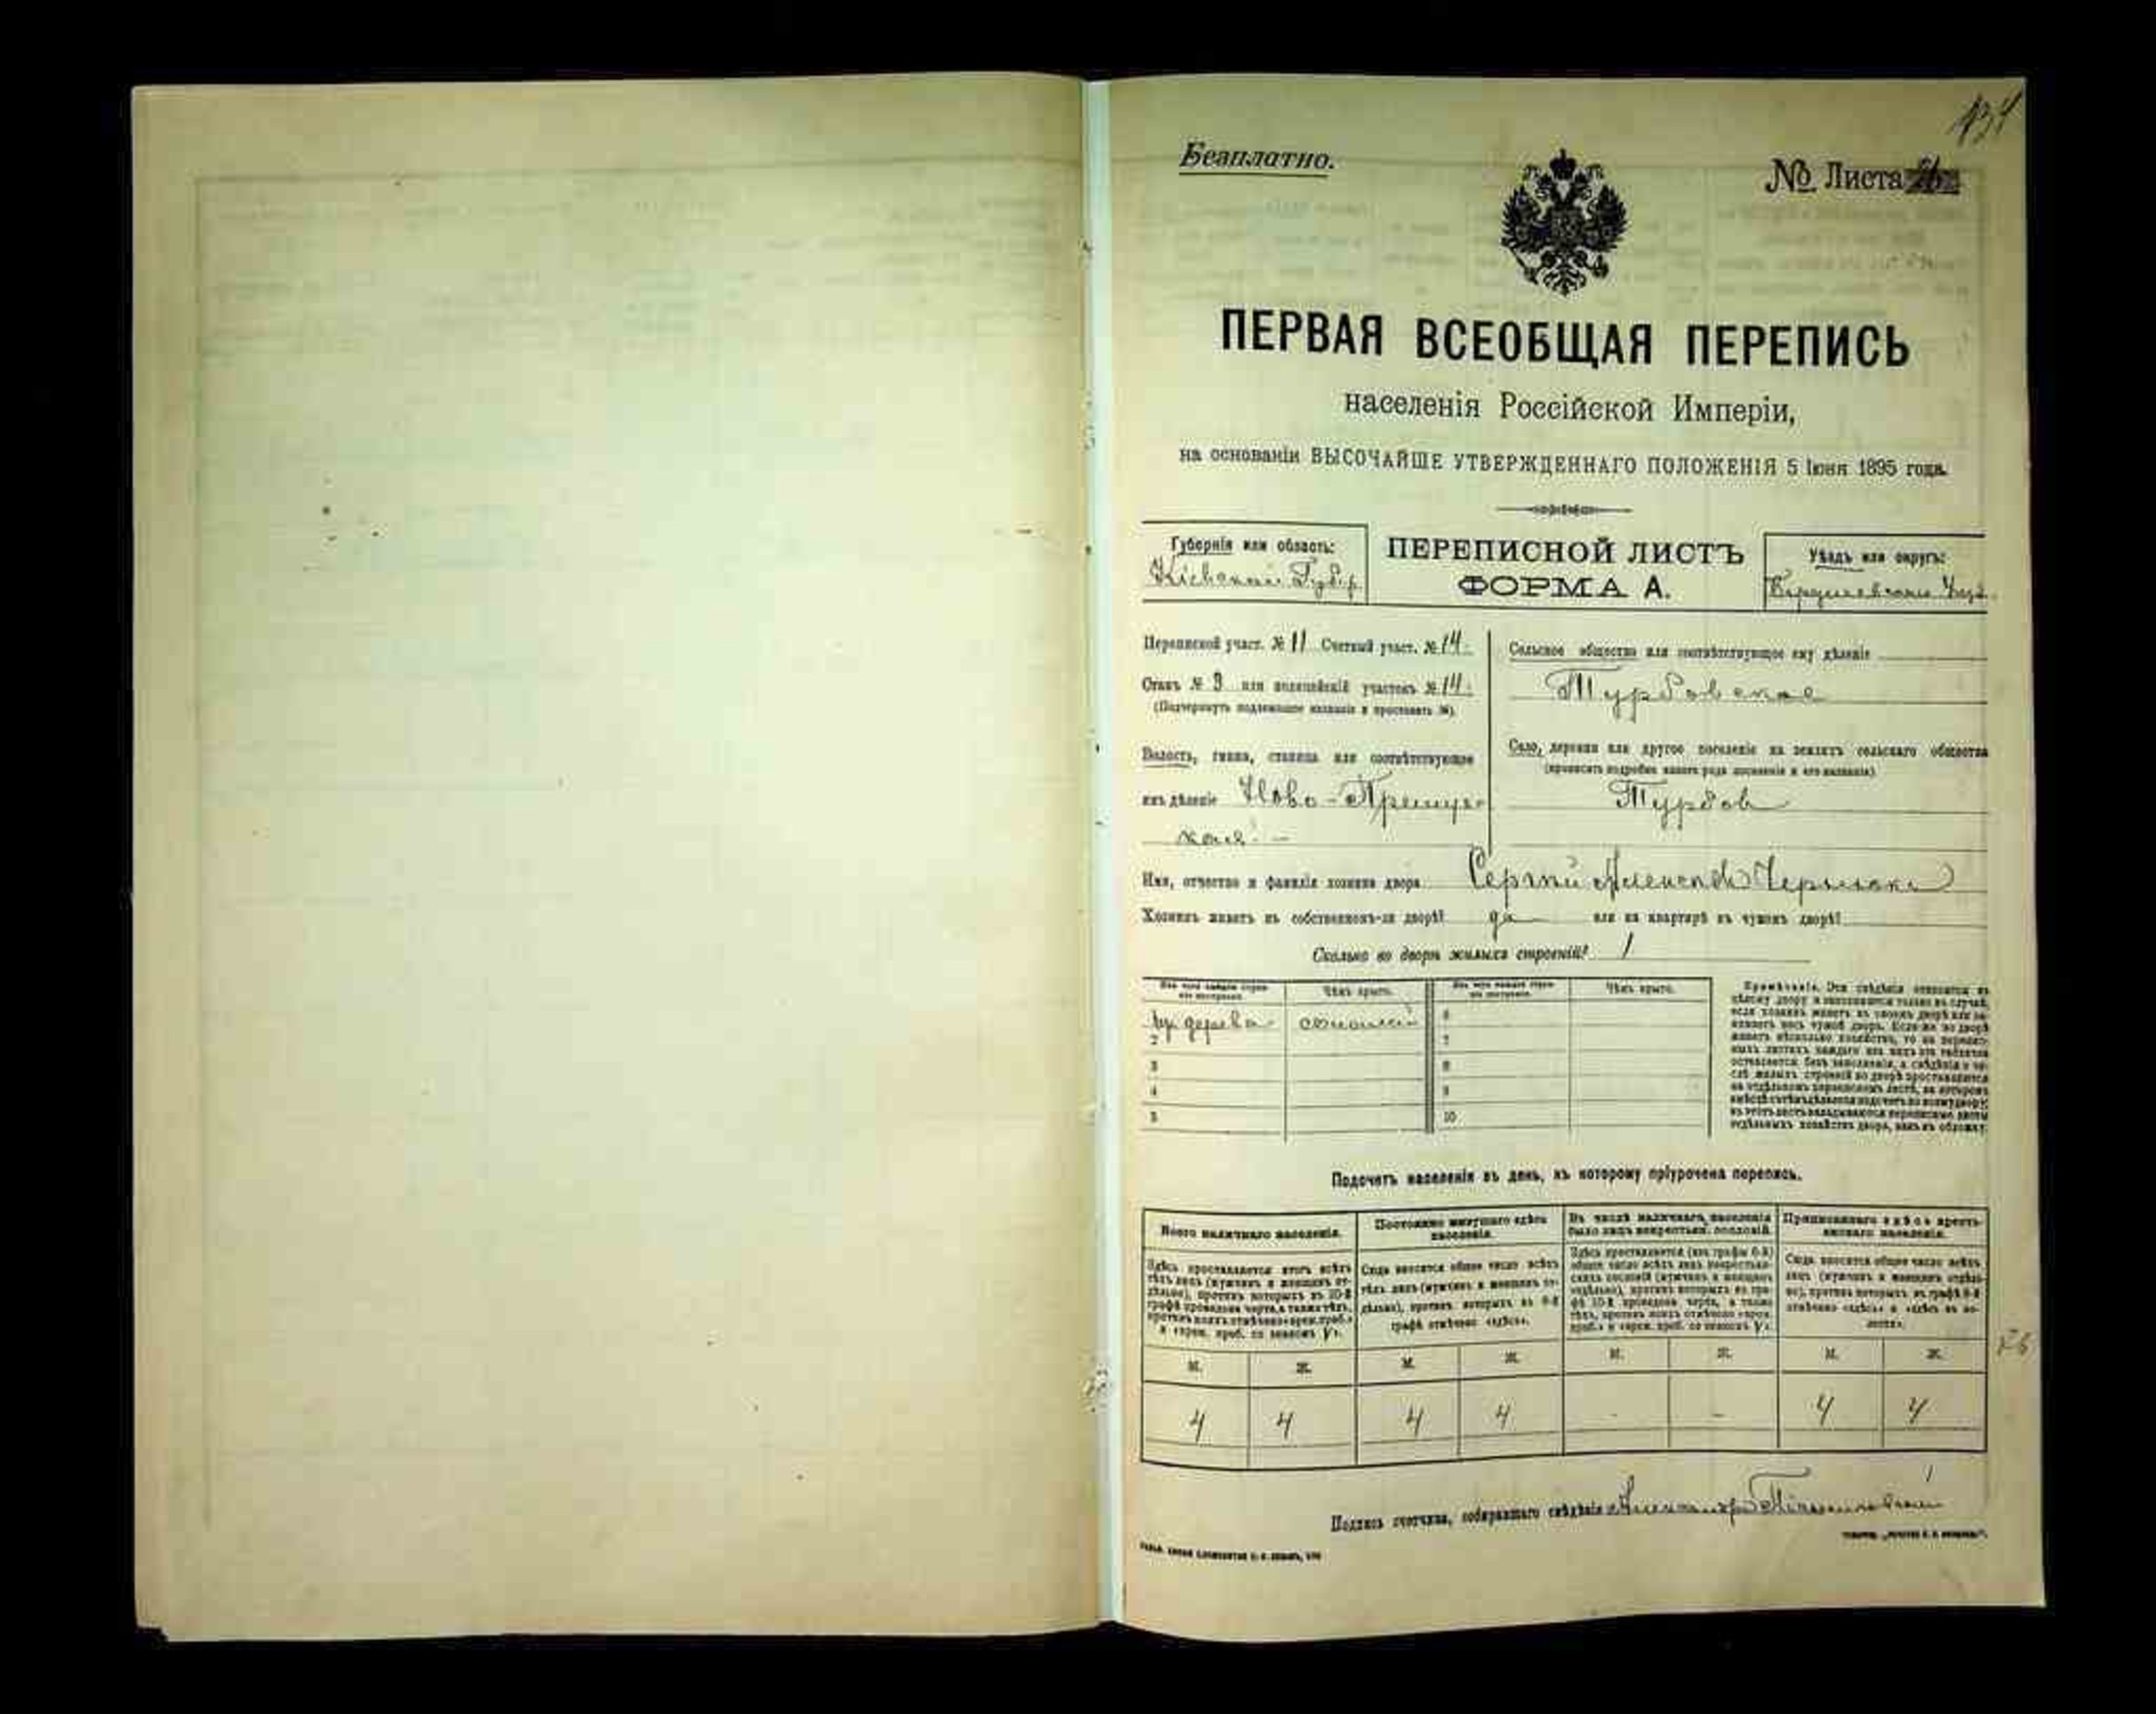 134
Безплатно.
№ Листа
ПЕРВАЯ ВСЕОБЩАЯ ПЕРЕПИСЬ
населенія Россійской Имперіи,
на основаніи ВЫСОЧАЙШЕ УТВЕРЖДЕННАГО ПОЛОЖЕНІЯ 5 Іюня 1895 года.
Губернія или область:
Кіевская Губер.
ПЕРЕПИСНОЙ ЛИСТЪ
ФОРМА А.
Уѣздъ или округъ:
Переписной участ. № 11 Счетный участ. № 14
Станъ № 3 или полицейскій участокъ № 14
(Подчеркнуть подлежащее названіе и проставить №).
Волость, гмина, станица или соотвѣтствующее
имъ дѣленіе Ново-Прилук-
кая
Сельское общество или соотвѣтствующее ему дѣленіе
Турбовское
Село, деревня или другое поселеніе на земляхъ сельскаго общества
(прописать подробно какого рода поселеніе и его названіе)
Турбов
Имя, отчество и фамилія хозяина двора Сергѣй
Хозяинъ живетъ въ собственномъ-ли дворѣ? да или на квартирѣ въ чужомъ дворѣ?
Сколько во дворѣ жилыхъ строеній? 1
Изъ чего каждое строеніе построено. Чѣмъ крыто. Изъ чего каждое строеніе построено. Чѣмъ крыто.
дерева соломой 6
2 7
3 8
4 9
5 10
Примѣчаніе. Эти свѣдѣнія относятся къ
цѣлому двору и заполняются только въ случаѣ,
если хозяинъ живетъ въ своемъ дворѣ или за-
нимаетъ весь чужой дворъ. Если же во дворѣ
живетъ нѣсколько хозяйствъ, то на перепис-
ныхъ листахъ каждаго изъ нихъ эта табличка
оставляется безъ заполненія, а свѣдѣнія о чи-
слѣ жилыхъ строеній во дворѣ проставляются
на отдѣльномъ переписномъ листѣ, на которомъ
вмѣстѣ съ тѣмъ дѣлается подсчетъ по всему двору;
въ этотъ листъ вкладываются переписные листы
отдѣльныхъ хозяйствъ двора, какъ въ обложку.
Подсчетъ населенія въ день, къ которому пріурочена перепись.
Всего наличнаго населенія.
Здѣсь проставляется итогъ всѣхъ
тѣхъ лицъ (мужчинъ и женщинъ от-
дѣльно), противъ которыхъ въ 10-й
графѣ проведена черта, а также тѣхъ,
противъ коихъ отмѣчено «врем. преб.»
и «врем. преб. со знакомъ V».
Постоянно живущаго здѣсь
населенія.
Сюда вносится общее число всѣхъ
тѣхъ лицъ (мужчинъ и женщинъ от-
дѣльно), противъ которыхъ въ 9-й
графѣ отмѣчено «здѣсь».
Въ числѣ наличнаго населенія
было лицъ некрестьян. сословій.
Здѣсь проставляется (изъ графы 6-й)
общее число всѣхъ лицъ некрестьян-
скихъ сословій (мужчинъ и женщинъ
отдѣльно), противъ которыхъ въ гра-
фѣ 10-й проведена черта, а также
тѣхъ, противъ коихъ отмѣчено «врем.
преб.» и «врем. преб. со знакомъ V».
Приписаннаго здѣсь кресть-
янскаго населенія.
Сюда вносится общее число всѣхъ
лицъ (мужчинъ и женщинъ отдѣль-
но), противъ которыхъ въ графѣ 8-й
отмѣчено «здѣсь» и «здѣсь въ во-
лости».
М. Ж. М. Ж. М. Ж. М. Ж.
4 4 4 4 - - 4 4
Подпись счетчика, собиравшаго свѣдѣнія Александръ